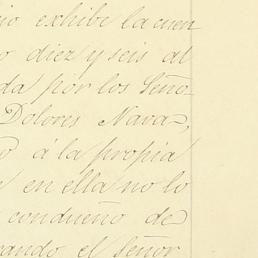 io exhibe la cuen
o diez y seis al
da por los Seño-
Dolores Nava,
o á la propia
en ella no lo
condueño de
cando el Señor